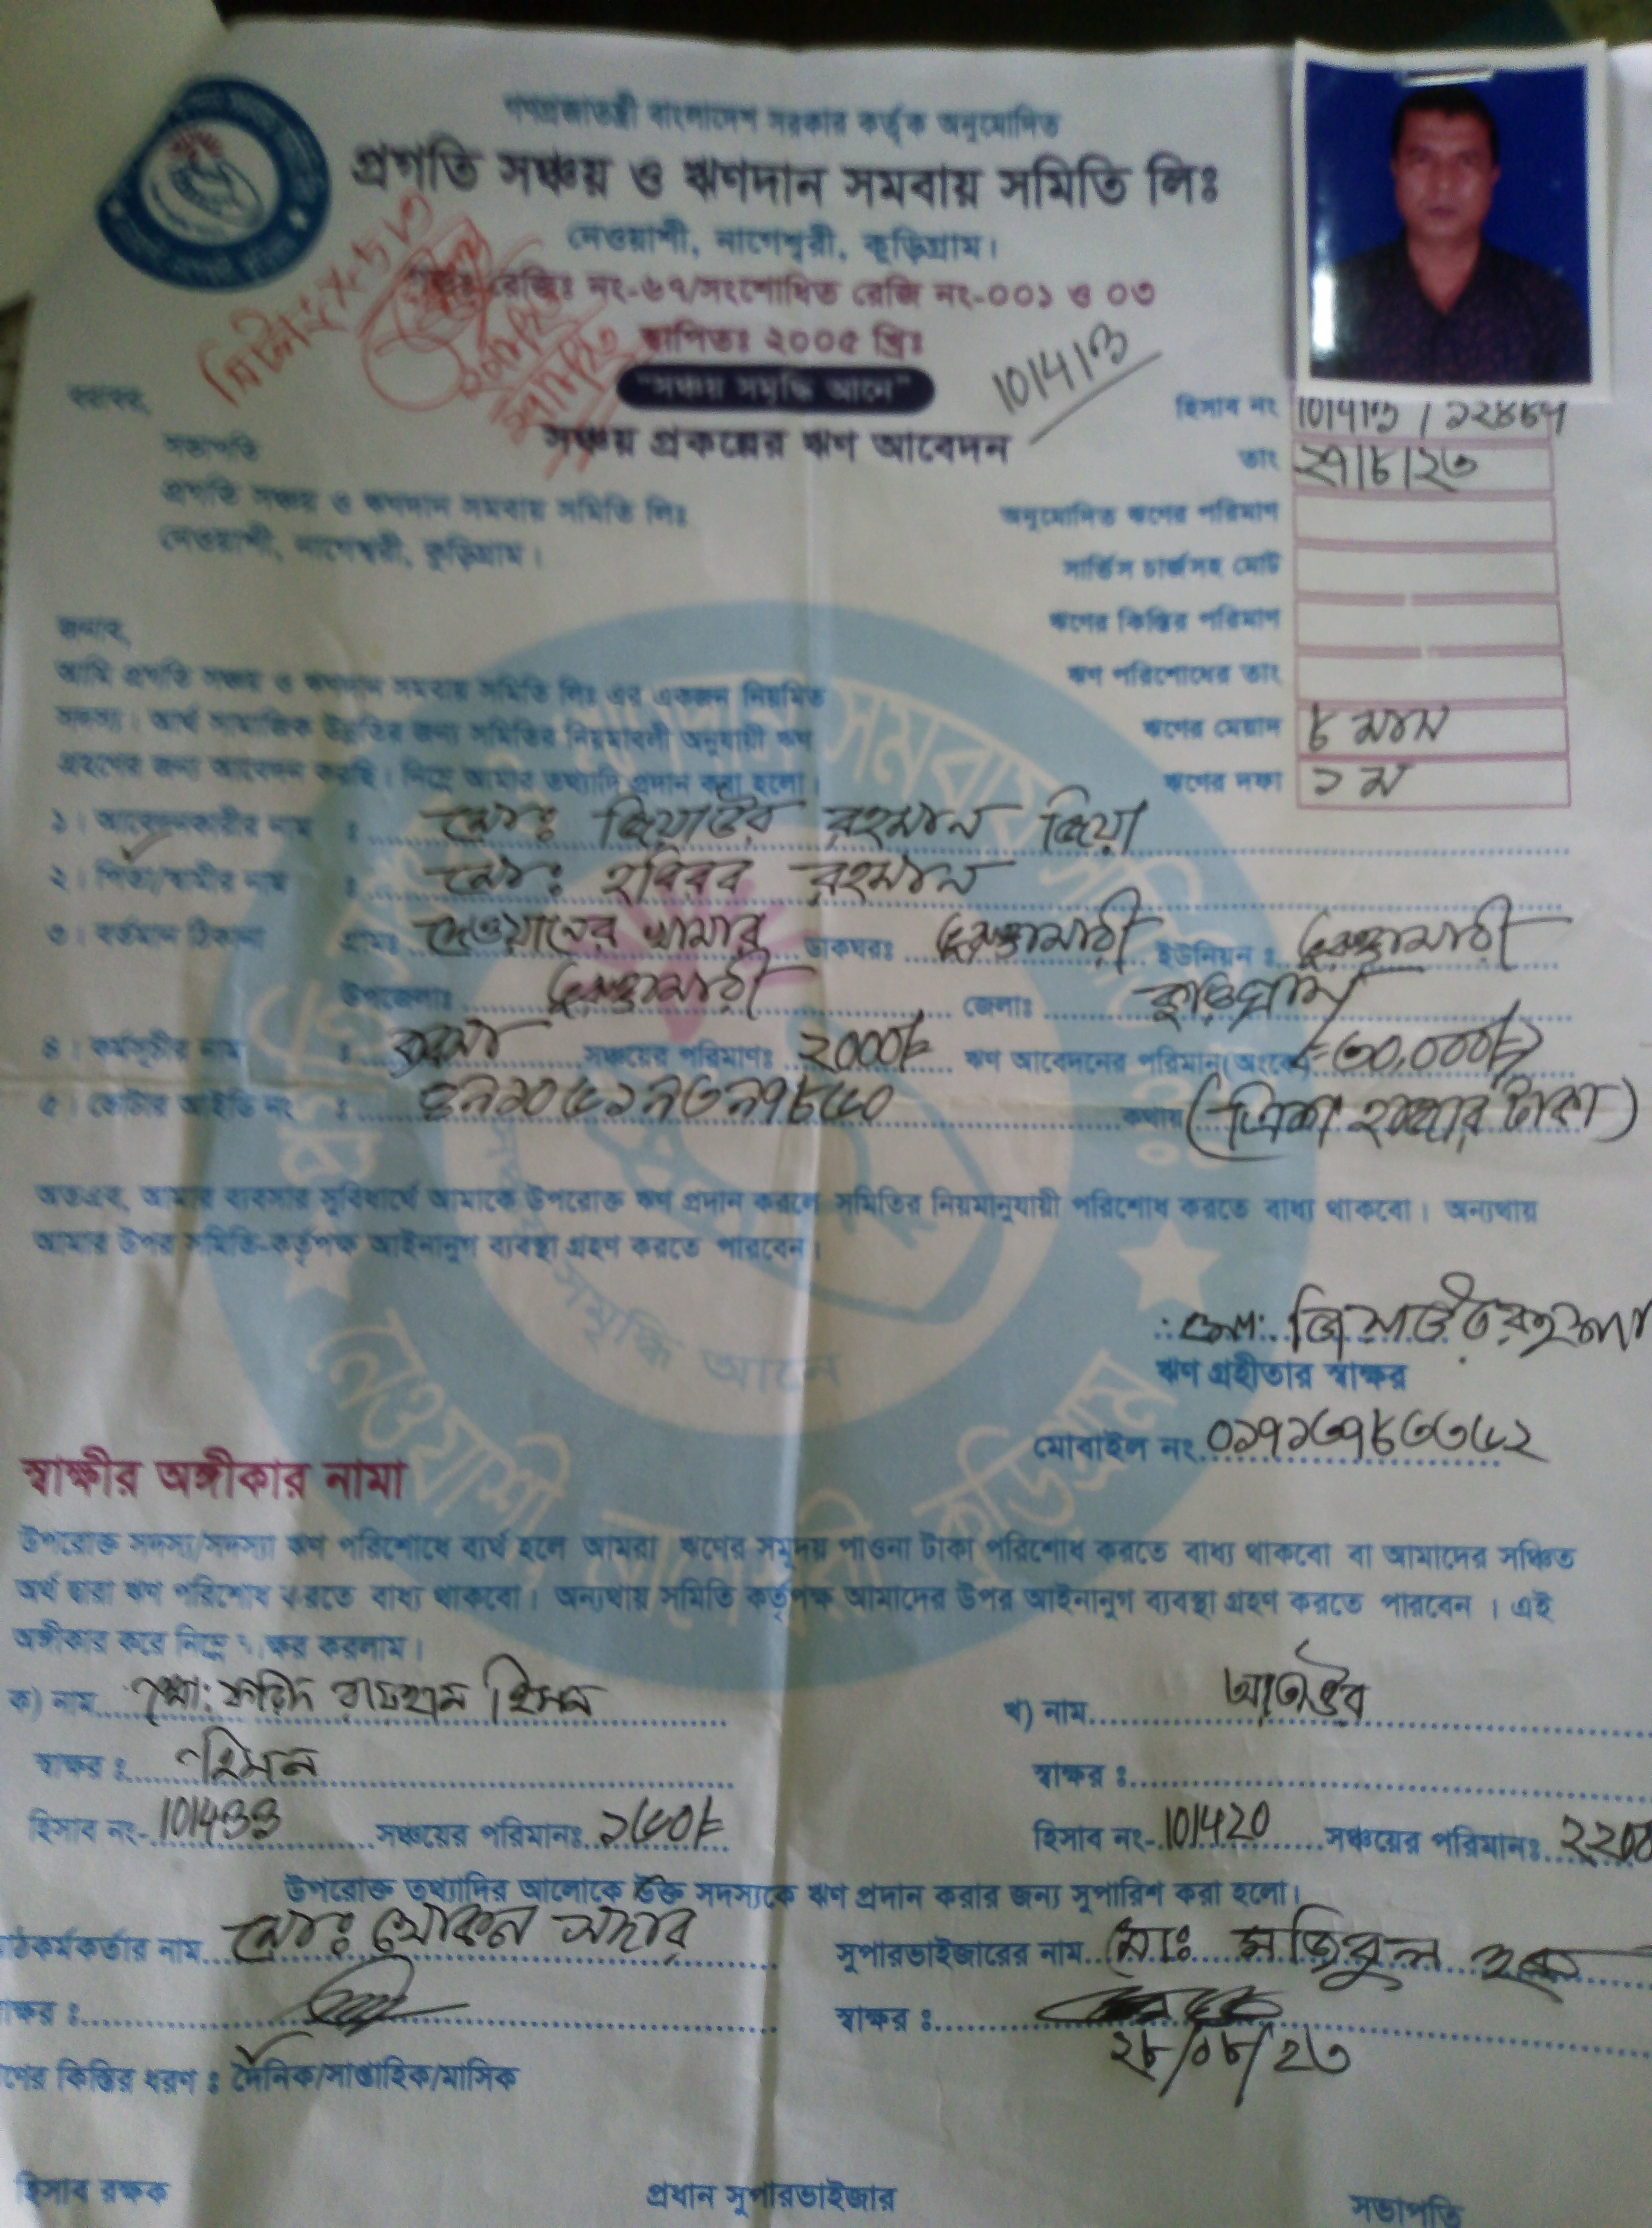 গণপ্রজাতন্ত্রী বাংলাদেশ সরকার কর্তৃক অনুমোদিত
প্রগতি সঞ্চয় ও ঋণদান সমবায় সমিতি লিঃ
নেওয়াশী, নাগেশ্বরী, কুড়িগ্রাম।
রেজিঃ নং-৬৭/সংশোধিত রেজি নং-০০১ ও ০৩
স্থাপিতঃ ২০০৫ খ্রিঃ
"সঞ্চয় সমৃদ্ধি আনে"
সঞ্চয় প্রকল্পের ঋণ আবেদন
হিসাব নং
তাং ২৭/৮/২৩
অনুমোদিত ঋণের পরিমাণ
সার্ভিস চার্জসহ মোট
ঋণের কিস্তির পরিমাণ
ঋণ পরিশোধের তাং
ঋণের মেয়াদ ৮ মাস
ঋণের দফা ১ম
বরাবর,
সভাপতি
প্রগতি সঞ্চয় ও ঋণদান সমবায় সমিতি লিঃ
নেওয়াশী, নাগেশ্বরী, কুড়িগ্রাম।
জনাব,
আমি প্রগতি সঞ্চয় ও ঋণদান সমবায় সমিতি লিঃ এর একজন নিয়মিত
সদস্য। আর্থ সামাজিক উন্নতির জন্য সমিতির নিয়মাবলী অনুযায়ী ঋণ
গ্রহণের জন্য আবেদন করছি। নিম্নে আমার তথ্যাদি প্রদান করা হলো।
১। আবেদনকারীর নাম : মোঃ জিয়াউর রহমান জিয়া
২। পিতা/স্বামীর নাম : মোঃ হবিবর রহমান
৩। বর্তমান ঠিকানা গ্রামঃ দেওয়ানের খামার ডাকঘরঃ ভূরুঙ্গামারী ইউনিয়ন : ভূরুঙ্গামারী
উপজেলাঃ ভূরুঙ্গামারী জেলাঃ কুড়িগ্রাম
৪। কর্মসূচীর নাম : সঞ্চয়ের পরিমাণঃ ২০০০/= ঋণ আবেদনের পরিমান(অংকে) ৩০,০০০/=
৫। ভোটার আইডি নং : কথায় (ত্রিশ হাজার টাকা)
অতএব, আমার ব্যবসার সুবিধার্থে আমাকে উপরোক্ত ঋণ প্রদান করলে সমিতির নিয়মানুযায়ী পরিশোধ করতে বাধ্য থাকবো। অন্যথায়
আমার উপর সমিতি-কর্তৃপক্ষ আইনানুগ ব্যবস্থা গ্রহণ করতে পারবেন।
মোঃ জিয়াউর রহমান
ঋণ গ্রহীতার স্বাক্ষর
মোবাইল নং ০১৭১৩৭৮৩৩৫২
স্বাক্ষীর অঙ্গীকার নামা
উপরোক্ত সদস্য/সদস্যা ঋণ পরিশোধে ব্যর্থ হলে আমরা ঋণের সমুদয় পাওনা টাকা পরিশোধ করতে বাধ্য থাকবো বা আমাদের সঞ্চিত
অর্থ দ্বারা ঋণ পরিশোধ করতে বাধ্য থাকবো। অন্যথায় সমিতি কর্তৃপক্ষ আমাদের উপর আইনানুগ ব্যবস্থা গ্রহণ করতে পারবেন । এই
অঙ্গীকার করে নিম্নে স্বাক্ষর করলাম।
ক) নাম মোঃ ফরিদ রায়হান হিমন
খ) নাম আতাউর
স্বাক্ষর : হিমন
স্বাক্ষর :
হিসাব নং- সঞ্চয়ের পরিমানঃ ১৫০/=
হিসাব নং- 101420 সঞ্চয়ের পরিমানঃ ২২০০
উপরোক্ত তথ্যাদির আলোকে উক্ত সদস্যকে ঋণ প্রদান করার জন্য সুপারিশ করা হলো।
ঠকর্মকর্তার নাম মোঃ খোকন
সুপারভাইজারের নাম মোঃ মজিবুল হক
ক্ষর :
স্বাক্ষর :
২৮/০৮/২৩
ণের কিস্তির ধরণ : দৈনিক/সাপ্তাহিক/মাসিক
হিসাব রক্ষক
প্রধান সুপারভাইজার
সভাপতি